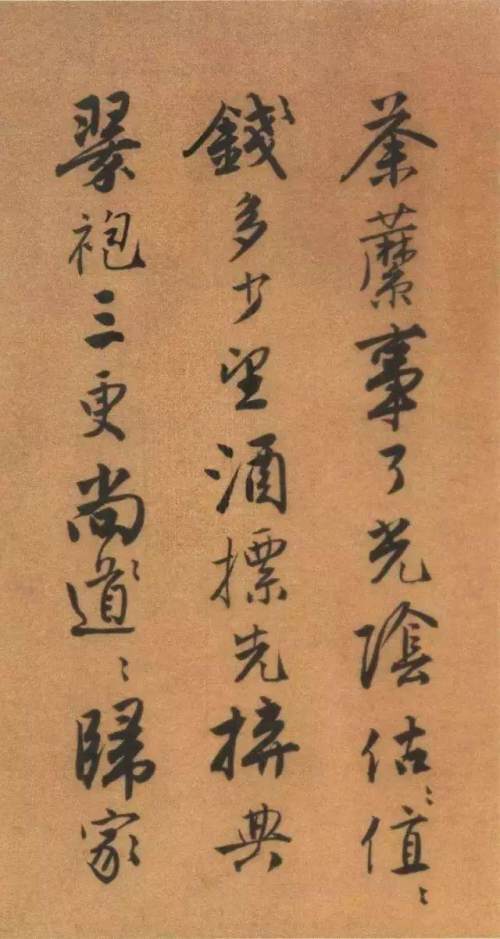 荼䕷事了光陰估〻值〻
錢多少望酒標先拚典
翠袍三更尚道〻歸家